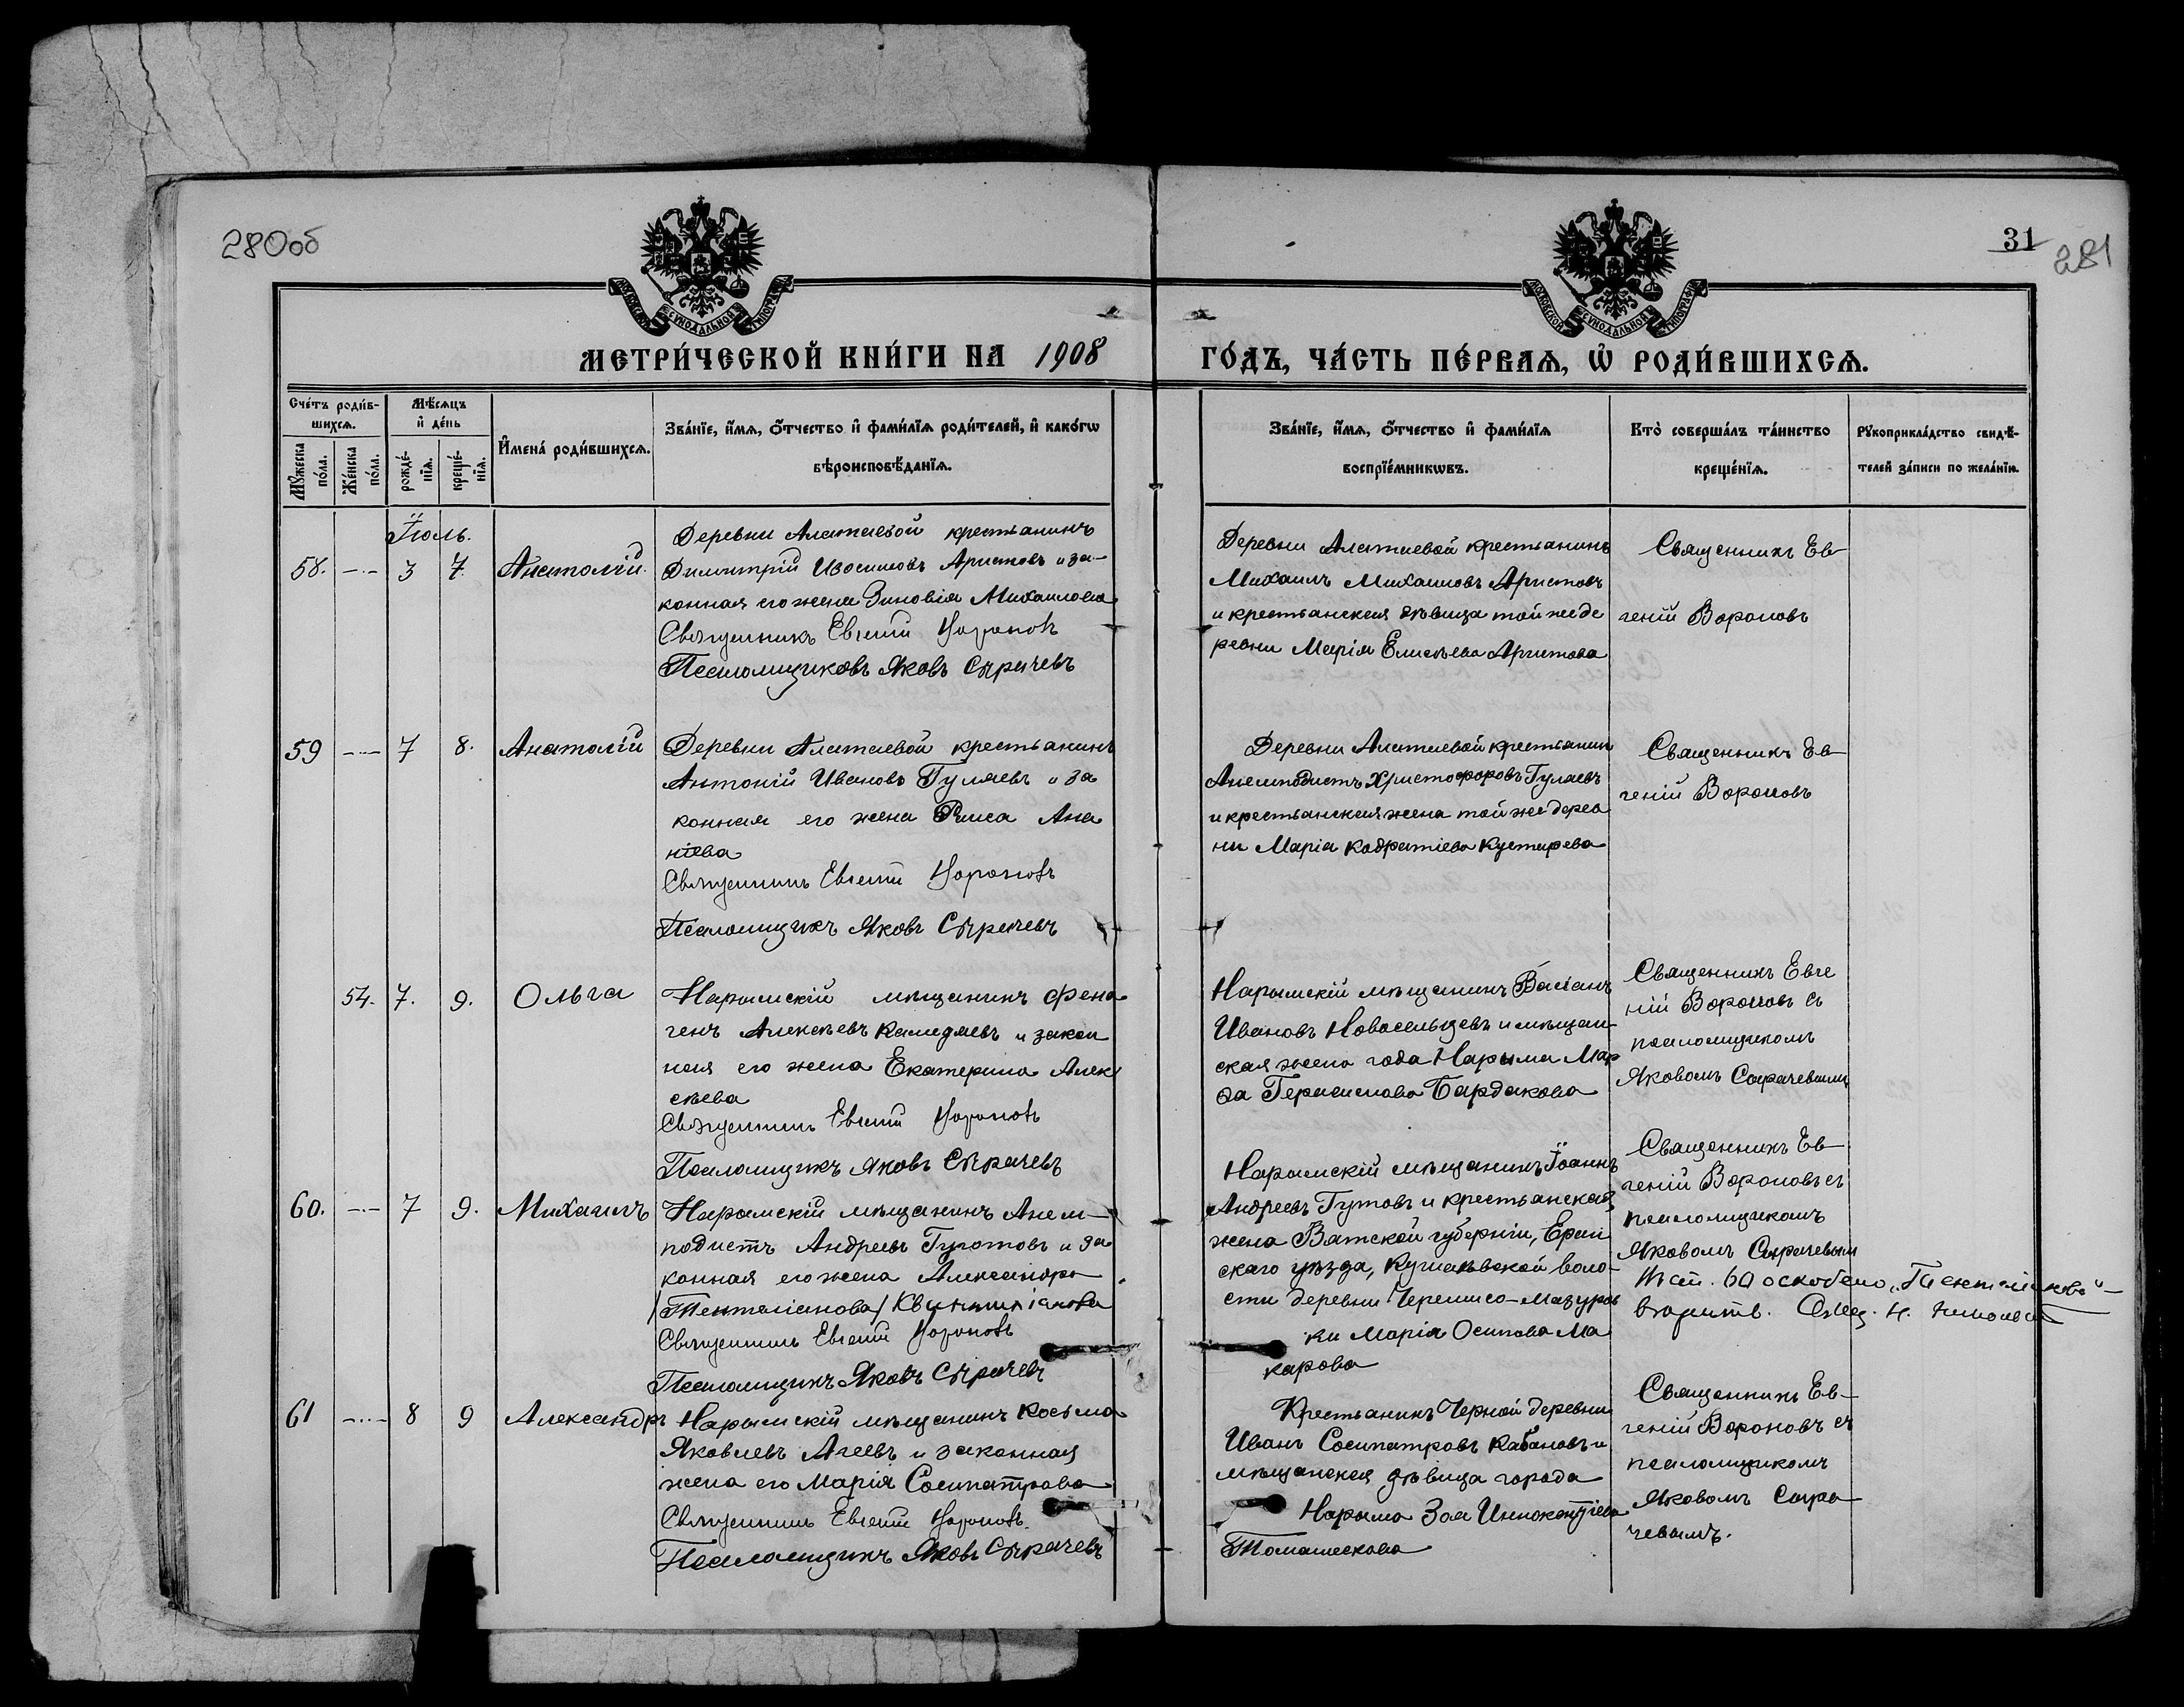 280об
31
281
МОСКОВСКОЙ СѴНОДАЛЬНОЙ ТИПОГРАФІИ
МОСКОВСКОЙ СѴНОДАЛЬНОЙ ТИПОГРАФІИ
МЕТРИ́ЧЕСКОЙ КНИ́ГИ НА 1908
ГО́ДЪ, ЧА́СТЬ ПЕ́РВАѦ, Ѽ РОДИ́ВШИХСѦ.
Сче́тъ роди́в-
шихсѧ.
Мꙋ́жеска по́ла.
Же́нска по́ла.
Мѣ́сѧцъ
и҆ де́нь
рожде́-
нїѧ.
креще́-
нїѧ.
И҆мена̀ роди́вшихсѧ.
Зва́нїе, и҆́мѧ, ѻ҆́тчество и҆ фами́лїѧ роди́телей, и҆ како́гѡ
вѣроисповѣ́данїѧ.
Зва́нїе, и҆́мѧ, ѻ҆́тчество и҆ фами́лїѧ
воспрїе́мникѡвъ.
Кто̀ соверша́лъ та́инство
креще́нїѧ.
Рꙋкоприкла́дство свидѣ́-
телей за́писи по жела́нїю.
Іюль.
58. — 3 7. Анатолій.
Деревни Алатаевой крестьянинъ
Димитрій Изосимовъ Аристовъ и за-
конная его жена Зиновія Михаилова
Священникъ Евгеній Вороновъ
Псаломщиковъ Яковъ Сырачевъ
Деревни Алатаевой крестьянинъ
Михаилъ Михаиловъ Аристовъ
и крестьянская дѣвица той же де
ревни Марія Елисѣева Аристова
Священникъ Ев-
геній Вороновъ
59 — 7 8. Анатолій
Деревни Алатаевой крестьянинъ
Антоній Ивановъ Гуляевъ и за
конная его жена Раиса Ана
ніева
Священникъ Евгеній Вороновъ
Псаломщикъ Яковъ Сырачевъ
Деревни Алатаевой крестьянин
Анемподистъ Христофоровъ Гуляевъ
и крестьянская жена той же дерев
ни Марія Кодратіева Кустарева
Священникъ Ев-
геній Вороновъ
54. 7. 9. Ольга
Нарымскій мѣщанинъ Фено
генъ Алексѣевъ и закон
ная его жена Екатерина Алек
сѣева
Священникъ Евгеній Вороновъ
Псаломщикъ Яковъ Сырачевъ
Нарымскій мѣщанинъ
Ивановъ Новосельцевъ и мѣщан-
ская жена года Нарыма Мар
ѳа Герасимова Бардакова
Священникъ Евге
ній Вороновъ съ
псаломщикомъ
Яковомъ Сырачевымъ
60. — 7 9. Михаилъ
Нарымскій мѣщанинъ Анем-
подистъ Андреевъ Гутовъ и за
конная его жена Александра
/Тентеліанова/ Квинтиліанова
Священникъ Евгеній Вороновъ
Псаломщикъ Яковъ Сырачевъ
Нарымскій мѣщанинъ Іоаннъ
Андреевъ Гутовъ и крестьянская
жена Вятской губерніи,
скаго уѣзда, воло-
сти деревни Черемисо-Мазуров
ки Марія Осипова Ма
карова
Священникъ Ев-
геній Вороновъ съ
псаломщикомъ
Яковомъ Сырачевым
60 оскоблено
61 — 8 9 Александръ
Нарымскій мѣщанинъ Косьма
Яковлевъ Агеевъ и законная
жена его Марія Сосипатрова
Священникъ Евгеній Вороновъ.
Псаломщикъ Яковъ Сырачевъ
Крестьянинъ Черной деревни
Иванъ Сосипатровъ Кабановъ и
мѣщанская дѣвица города
Нарыма Зоя Иннокентіева
Священникъ Ев-
геній Вороновъ съ
псаломщикомъ
Яковомъ Сыра-
чевымъ.